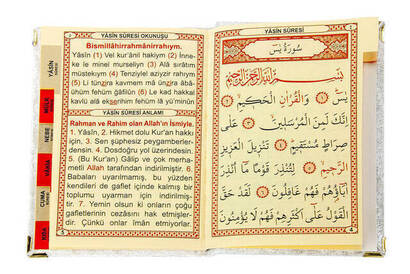 YÂSÎN SÛRESİ OKUNUŞU
Bismillâhirrahmânirrahıym.
Yâsîn (1) Vel kur'ânil hakiym (2) İnne-
ke le minel murseliyn (3) Alâ sırâtım
müstekıym (4) Tenziylel aziyzir rahıym
(5) Li tünzira kavmen mâ ünzira âbâ-
ühüm fehüm ğâfilûn (6) Le kad hakkal
kavlü alâ ekserihim fehüm lâ yü'minûn
YÂSÎN SÛRESİ ANLAMI
Rahman ve Rahim olan Allah'ın İsmiyle.
1. Yâsîn, 2. Hikmet dolu Kur'an hakkı
için, 3. Sen şüphesiz peygamberler-
densin. 4. Dosdoğru yol üzerindesin.
5. (Bu Kur'an) Gâlip ve çok merha-
metli Allah tarafından indirilmiştir. 6.
Babaları uyarılmamış, bu yüzden
kendileri de gaflet içinde kalmış bir
toplumu uyarman için indirilmiş-
tir. 7. Yemin olsun ki onların çoğu
gafletlerinin cezasını hak etmişler-
dir. Çünkü onlar iman etmiyorlar.
5
YÂSÎN
MÜLK
NEBE
VAKIA
CUMA
KISA
YÂSÎN SÛRESİ
سُورَةُ يٰسٓ
بِسْمِ اللّٰهِ الرَّحْمٰنِ الرَّحٖيمِ
يٰسٓ ﴿١﴾ وَالْقُرْاٰنِ الْحَكٖيمِ ﴿٢﴾
اِنَّكَ لَمِنَ الْمُرْسَلٖينَ ﴿٣﴾ عَلٰى
صِرَاطٍ مُسْتَقٖيمٍ ﴿٤﴾ تَنْزٖيلَ الْعَزٖيزِ
الرَّحٖيمِ ﴿٥﴾ لِتُنْذِرَ قَوْمًا مَٓا اُنْذِرَ
اٰبَٓاؤُهُمْ فَهُمْ غَافِلُونَ ﴿٦﴾ لَقَدْ حَقَّ
الْقَوْلُ عَلٰٓى اَكْثَرِهِمْ فَهُمْ لَا يُؤْمِنُونَ
4